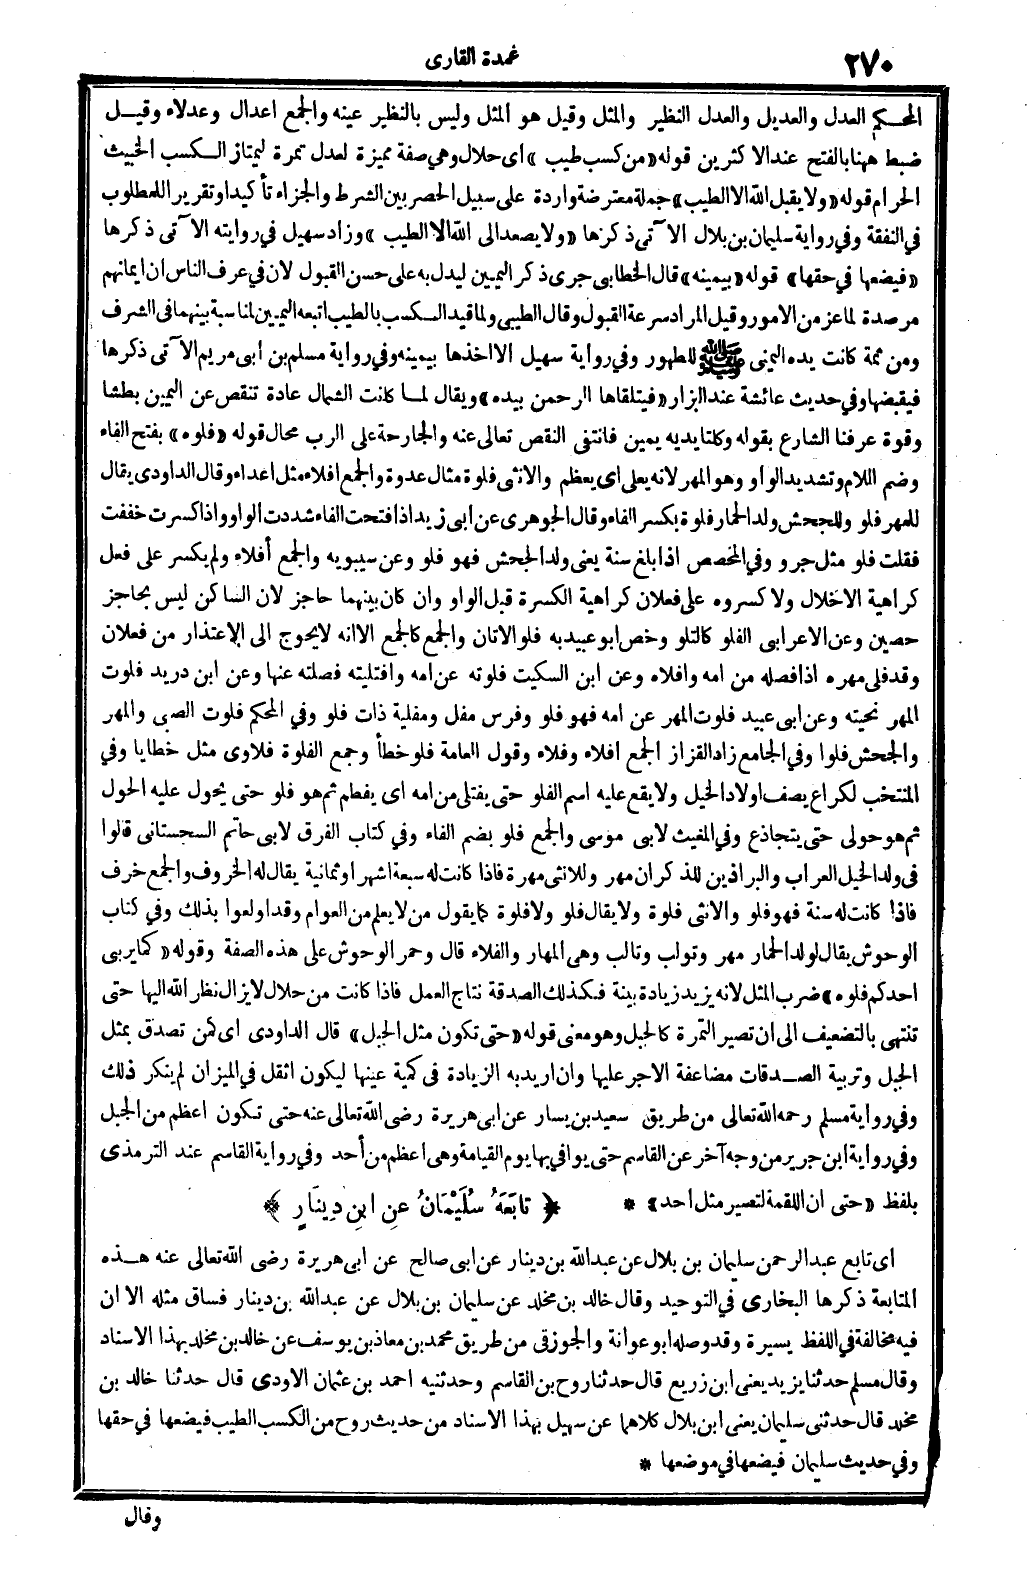 ٢٧٠
عمدة القارى
المحكم العدل والعديل والعدل النظير والمثل وقيل هو المثل وليس بالنظير عينه والجمع اعدال وعدلاء وقيل
ضبط ههنا بالفتح عند الاكثرين قوله «من كسب طيب» اى حلال وهي صفة مميزة لعدل تمرة ليمتاز الكسب الخبيث
الحرام قوله «ولا يقبل الله الا الطيب» جملة معترضة واردة على سبيل الحصر بين الشرط والجزاء تأكيدا وتقريرا للمطلوب
في النفقة وفي رواية سليمان بن بلال الآتى ذكرها «ولا يصعد الى الله الا الطيب» وزاد سهيل في روايته الآتى ذكرها
«فيضعها في حقها» قوله «بيمينه» قال الخطابى جرى ذكر اليمين ليدل به على حسن القبول لان في عرف الناس ان ايمانهم
مرصدة لما عز من الامور وقيل المراد سرعة القبول وقال الطيبى ولما قيد الكسب بالطيب اتبعه اليمين لمناسبة بينهما فى الشرف
ومن ثمة كانت يده اليمنى ﷺ للطهور وفي رواية سهيل الا اخذها بيمينه وفي رواية مسلم بن ابى مريم الآتى ذكرها
فيقبضها وفي حديث عائشة عند البزار «فيتلقاها الرحمن بيده» ويقال لما كانت الشمال عادة تنقص عن اليمين بطشا
وقوة عرفنا الشارع بقوله وكلتا يديه يمين فانتفى النقص تعالى عنه والجارحة على الرب محال قوله «فلوه» بفتح الفاء
وضم اللام وتشديد الواو وهو المهر لانه يعلى اى يعظم والانثى فلوة مثال عدوة والجمع افلاء مثل اعداء وقال الداودى يقال
للمهر فلو وللجحش ولد الحمار فلوة بكسر الفاء وقال الجوهرى عن ابى زيد اذا فتحت الفاء شددت الواو واذا كسرت خففت
فقلت فلو مثل جرو وفي المخصص اذا بلغ سنة يعنى ولد الجحش فهو فلو وعن سيبويه والجمع أفلاء ولم يكسر على فعل
كراهية الاخلال ولا كسروه على فعلان كراهية الكسرة قبل الواو وان كان بينهما حاجز لان الساكن ليس بحاجز
حصين وعن الاعرابى الفلو كالتلو وخص ابو عبيد به فلو الاتان والجمع كالجمع الا انه لا يحوج الى الاعتذار من فعلان
وقد فلى مهره اذا فصله من امه وافلاه وعن ابن السكيت فلوته عن امه وافتليته فصلته عنها وعن ابن دريد فلوت
المهر نحيته وعن ابى عبيد فلوت المهر عن امه فهو فلو وفرس مفل ومفلية ذات فلو وفي المحكم فلوت الصبى والمهر
والجحش فلوا وفي الجامع زاد القزاز الجمع افلاء وفلاء وقول العامة فلو خطأ وجمع الفلوة فلاوى مثل خطايا وفي
المنتخب لكراع يصف اولاد الخيل ولا يقع عليه اسم الفلو حتى يفتلى من امه اى يفطم ثم هو فلو حتى يحول عليه الحول
ثم هو حولى حتى يتجاذع وفي المغيث لابى موسى والجمع فلو بضم الفاء وفي كتاب الفرق لابى حاتم السجستانى قالوا
فى ولد الخيل العراب والبراذين للذكران مهر وللانثى مهرة فاذا كانت له سبعة اشهر او ثمانية يقال له الخروف والجمع خرف
فاذا كانت له سنة فهو فلو والانثى فلوة ولا يقال فلو ولا فلوة كما يقول من لا يعلم من العوام وقد اولعوا بذلك وفي كتاب
الوحوش يقال لولد الحمار مهر وتولب وتالب وهى المهار والفلاء قال وحمر الوحوش على هذه الصفة وقوله «كما يربى
احدكم فلوه» ضرب المثل لانه يزيد زيادة بينة فكذلك الصدقة نتاج العمل فاذا كانت من حلال لا يزال نظر الله اليها حتى
تنتهى بالتضعيف الى ان تصير التمرة كالجبل وهو معنى قوله «حتى تكون مثل الجبل» قال الداودى اى كمن تصدق بمثل
الجبل وتربية الصدقات مضاعفة الاجر عليها وان اريد به الزيادة فى كمية عينها ليكون اثقل في الميزان لم ينكر ذلك
وفي رواية مسلم رحمه الله تعالى من طريق سعيد بن يسار عن ابى هريرة رضى الله تعالى عنه حتى تكون اعظم من الجبل
وفي رواية ابن جرير من وجه آخر عن القاسم حتى يوافي بها يوم القيامة وهى اعظم من أحد وفي رواية القاسم عند الترمذى
بلفظ «حتى ان اللقمة لتصير مثل احد» * ﴿ تابَعَهُ سُلَيْمَانُ عنِ ابنِ دِينَارٍ ﴾
اى تابع عبد الرحمن سليمان بن بلال عن عبد الله بن دينار عن ابى صالح عن ابى هريرة رضى الله تعالى عنه هذه
المتابعة ذكرها البخارى في التوحيد وقال خالد بن مخلد عن سليمان بن بلال عن عبد الله بن دينار فساق مثله الا ان
فيه مخالفة في اللفظ يسيرة وقد وصله ابو عوانة والجوزقى من طريق محمد بن معاذ بن يوسف عن خالد بن مخلد بهذا الاسناد
وقال مسلم حدثنا يزيد يعنى ابن زريع قال حدثنا روح بن القاسم وحدثنيه احمد بن عثمان الاودى قال حدثنا خالد بن
مخلد قال حدثنى سليمان يعنى ابن بلال كلاهما عن سهيل بهذا الاسناد من حديث روح من الكسب الطيب فيضعها في حقها
وفي حديث سليمان فيضعها في موضعها *
وقال